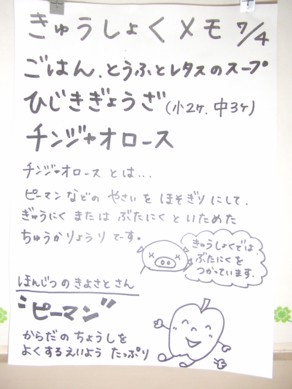 きゅうしょくメモ 7/4
ごはん、とうふとレタスのスープ
ひじきぎょうざ(小2ケ、中3ケ)
チンジャオロース
チンジャオロース とは...
ピーマン などの やさい を ほそぎり にして、
ぎゅうにく または ぶたにく と いためた
ちゅうかりょうり です。
きゅうしょくでは
ぶたにくを
つかっています。
ほんじつ の きよさと さん
"ピーマン"
からだの ちょうしを
よくする えいよう たっぷり